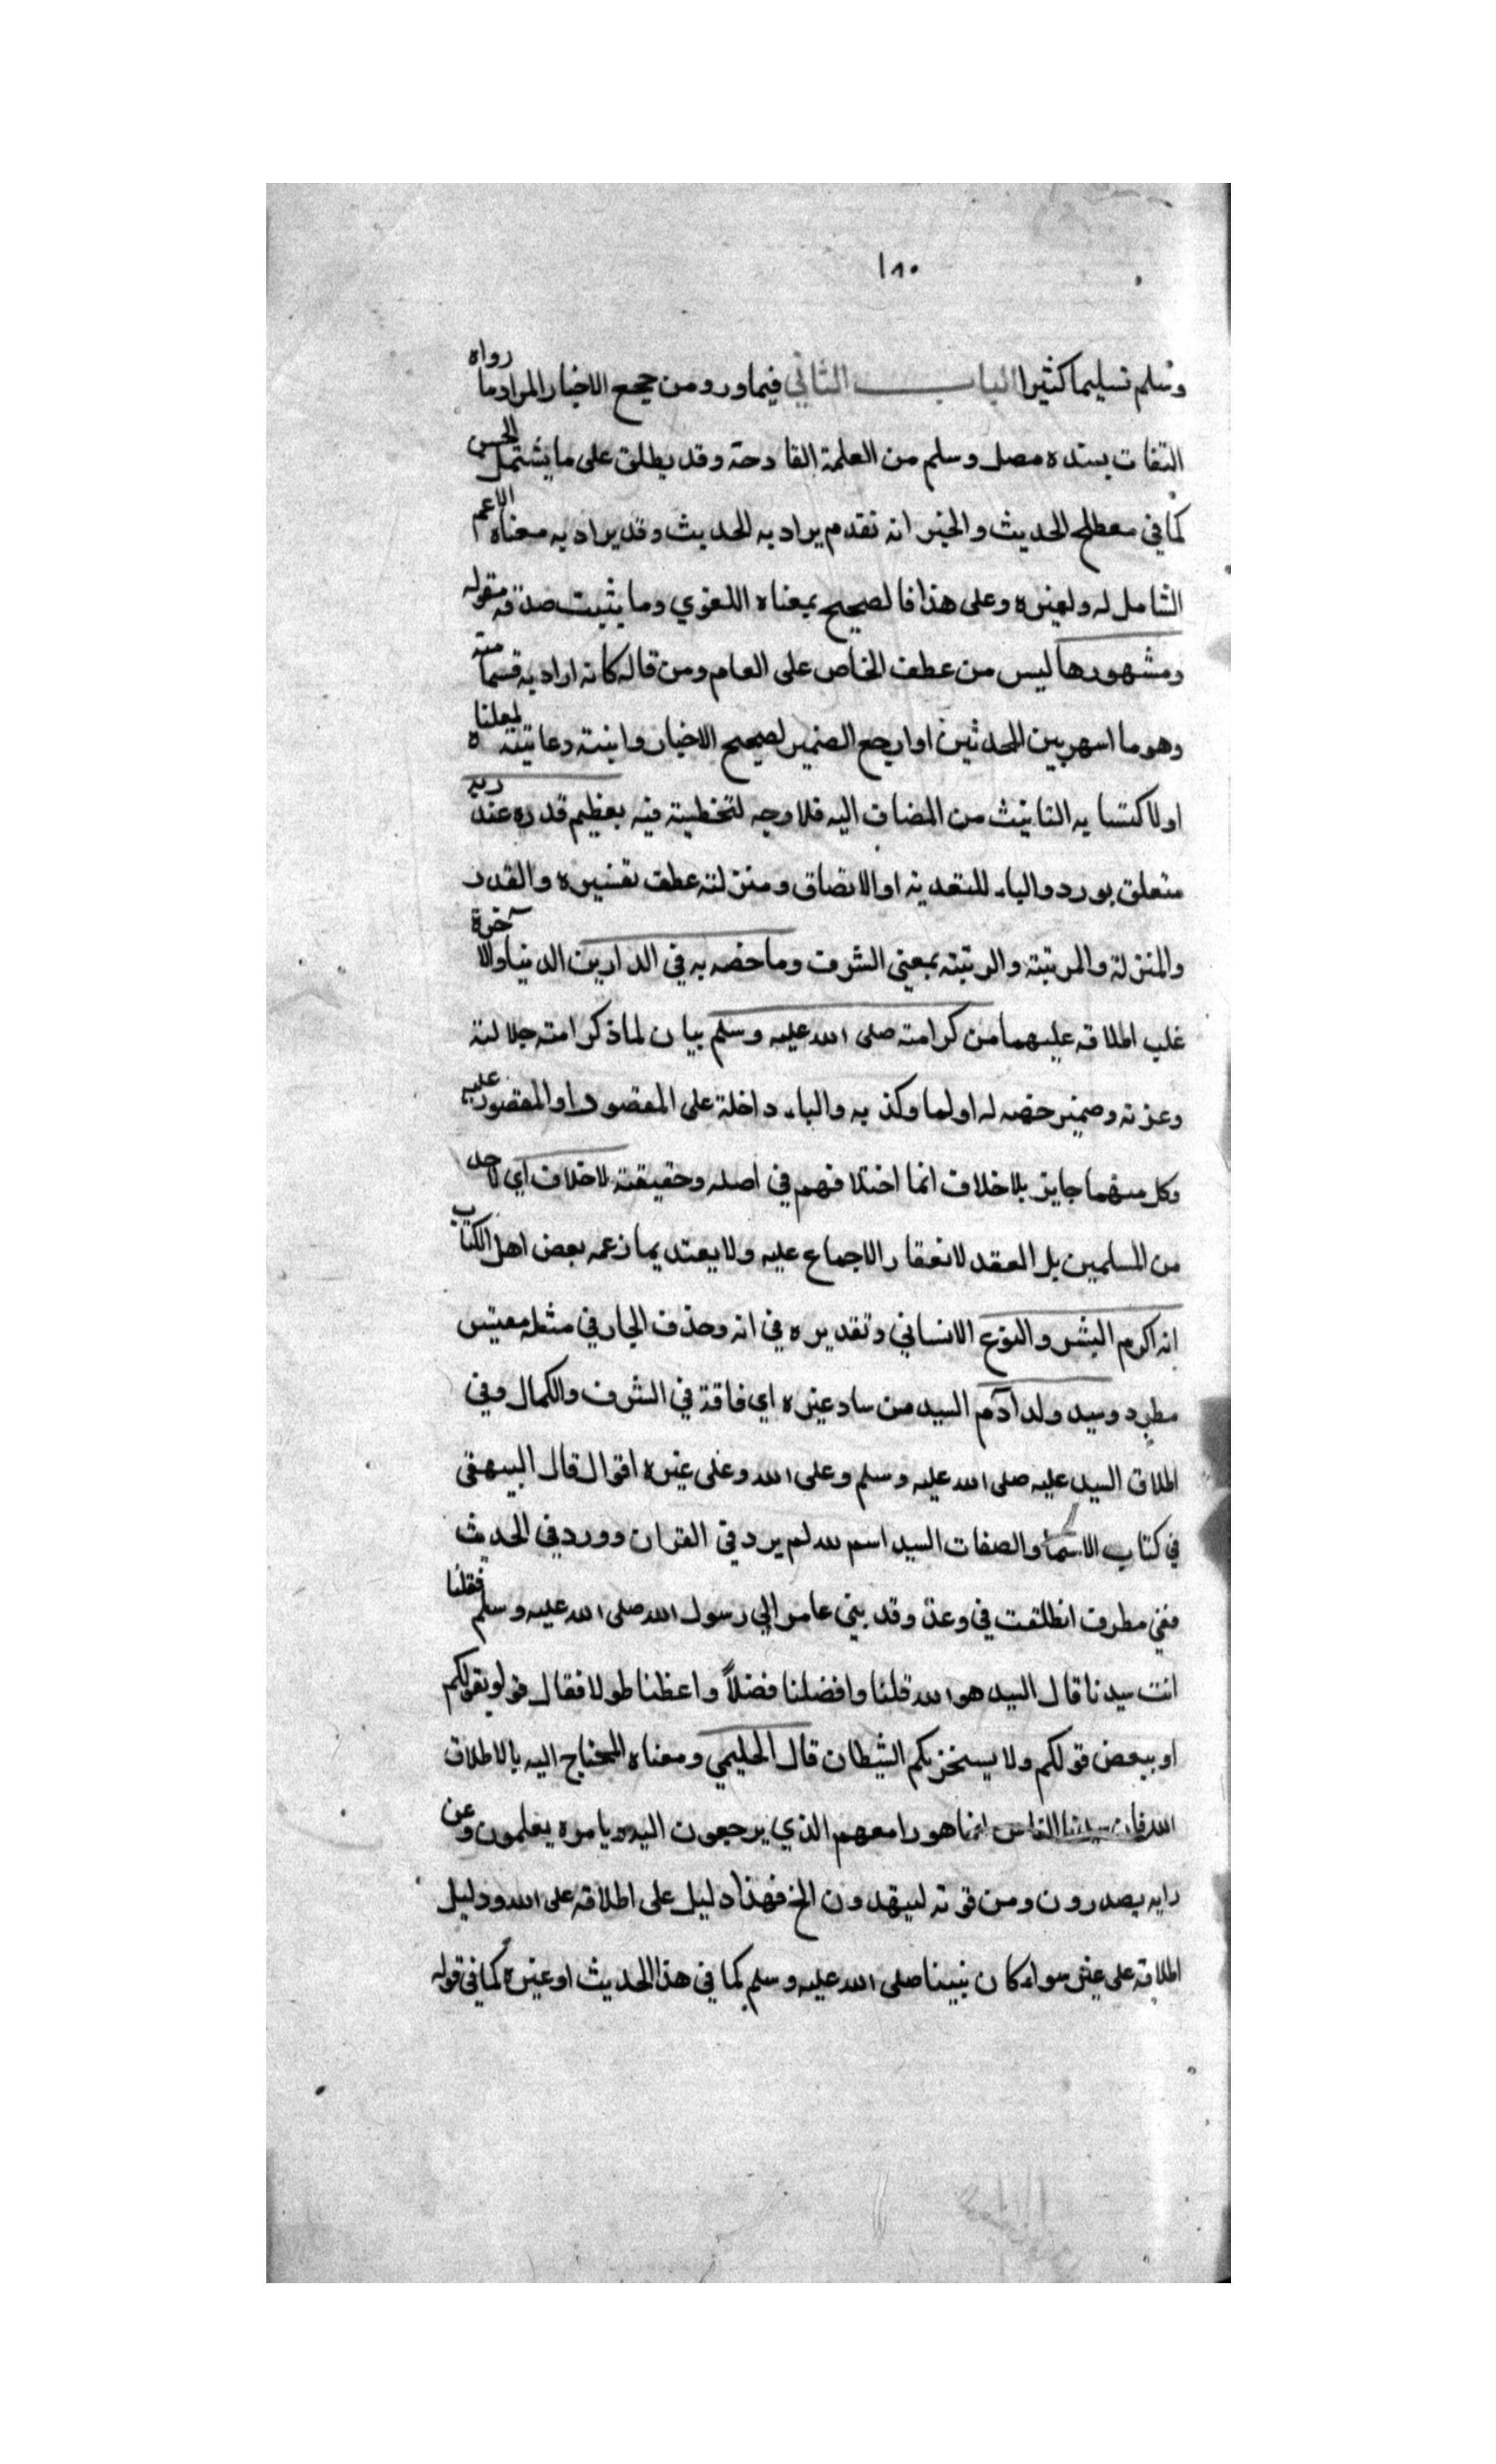 ١٨٠
وسلم تسليما كثيرا الباب الثاني فيما ورد من صحيح الاخبار المراد ما رواه
الثقات بسنده متصل وسلم من العلة القادحة وقد يطلق على ما يشتمل الحسن
كما في مصطلح الحديث والخبر انه تقدم يراد به الحديث وقد يراد به معناه الاعم
الشامل له ولغيره وعلى هذا فالصحيح بمعناه اللغوي وما يثبت صدقه مقوله
ومشهورها ليس من عطف الخاص على العام ومن قاله كانه اراد به قسما منه
وهو ما اشهر بين المحدثين او ارجع الضمير لصحيح الاخبار وانيته رعاية لمعناه
او لاكتسابه التانيث من المضاف اليه فلا وجه لتخطيته فيه بعظيم قدره عند ربه
متعلق بورد والباء للتعدية او الالصاق ومنزلته عطف تفسيره والقدر
والمنزلة والمرتبة والرتبة بمعنى الشرف وما خصه به في الدارين الدنيا والاخرة
غلب اطلاقه عليهما من كرامته صلى الله عليه وسلم بيان لما ذكر امته جلالته
وعزته وضمير خصه له اولما وكذ به والباء داخلة على المقصود او المقصور عليه
وكل منهما جايز بلا خلاف انما اختلافهم في اصله وحقيقته لا خلاف اي لاحد
من المسلمين بل العقد لانعقاد الاجماع عليه ولا يعتد بما زعمه بعض اهل الكتاب
انه اكرم البشر والنوع الانساني وتقديره في انه وحذف الجار في مثله مقيس
مطرد وسيد ولد آدم السيد من ساد غيره اي فاقة في الشرف والكمال وفي
اطلاق السيد عليه صلى الله عليه وسلم وعلى الله وعلى غيره اقوال قال البيهقي
في كتاب الاسما والصفات السيد اسم لله لم يرد في القران وورد في الحديث
ففي مطرف انطلقت في وعد وفد بني عامر الي رسول الله صلى الله عليه وسلم فقلنا
انت سيدنا قال السيد هو الله قلنا وافضلنا فضلاً واعظنا طولا فقال قولو بقولكم
او ببعض قولكم ولا يستخزبكم الشيطان قال الحليمي ومعناه المحتاج اليه بالاطلاق
الله فان سيدنا الناس انما هو رامعهم الذي يرجعون اليه وبامره يعلمون وعن
رايه يصدرون ومن قوته ليتهدون الخ فهذا دليل على اطلاقه على الله ودليل
اطلاقه على غيره سواء كان نبينا صلى الله عليه وسلم كما في هذا الحديث او غيره كما في قوله